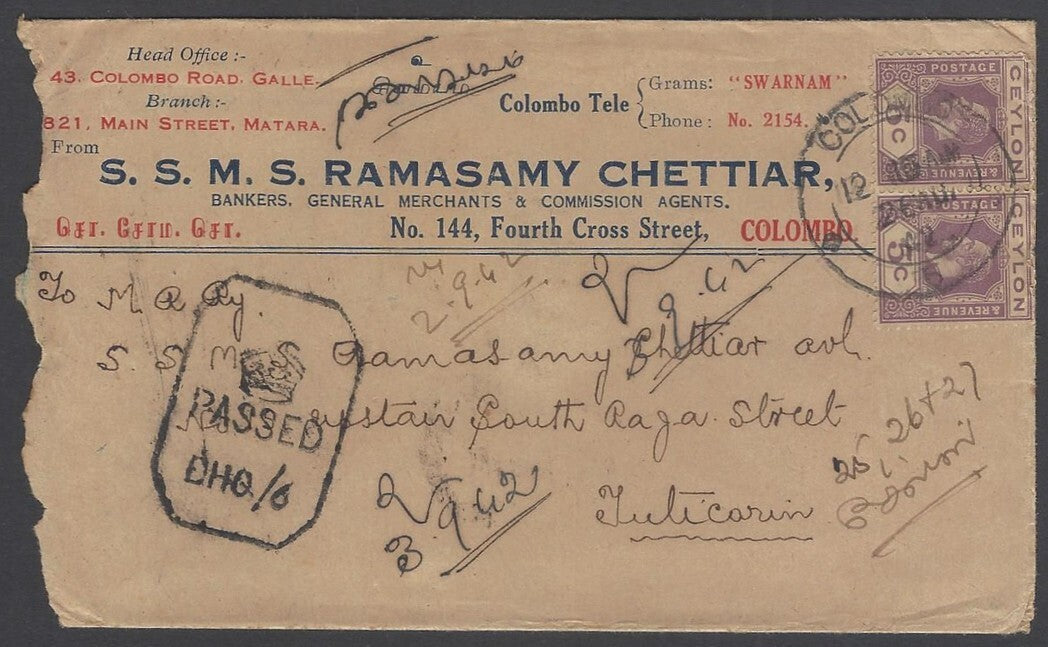 Head Office :-
43, COLOMBO ROAD, GALLE.
Branch :-
821, MAIN STREET, MATARA.
Colombo Tele
Grams: "SWARNAM"
Phone: No. 2154.
From
S. S. M. S. RAMASAMY CHETTIAR,
BANKERS, GENERAL MERCHANTS & COMMISSION AGENTS.
No. 144, Fourth Cross Street, COLOMBO
POSTAGE
CEYLON
5 C
& REVENUE
POSTAGE
CEYLON
5 C
& REVENUE
12
To M. R. Ry.
S. S. M. S Ramasamy Chettiar avl.
upstair South Raja Street
Tuticorin
2.9.42
2/9.42
3/9.42
26+27
PASSED
DHQ/6